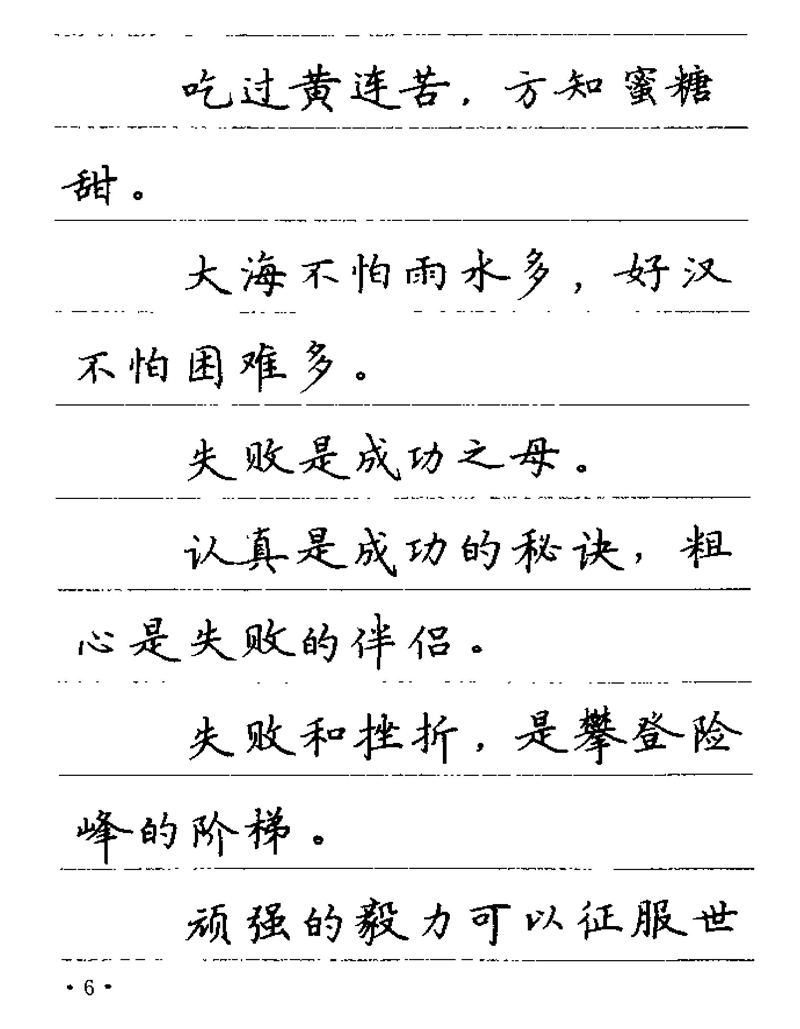 吃过黄连苦，方知蜜糖
甜。
大海不怕雨水多，好汉
不怕困难多。
失败是成功之母。
认真是成功的秘诀，粗
心是失败的伴侣。
失败和挫折，是攀登险
峰的阶梯。
顽强的毅力可以征服世
·6·